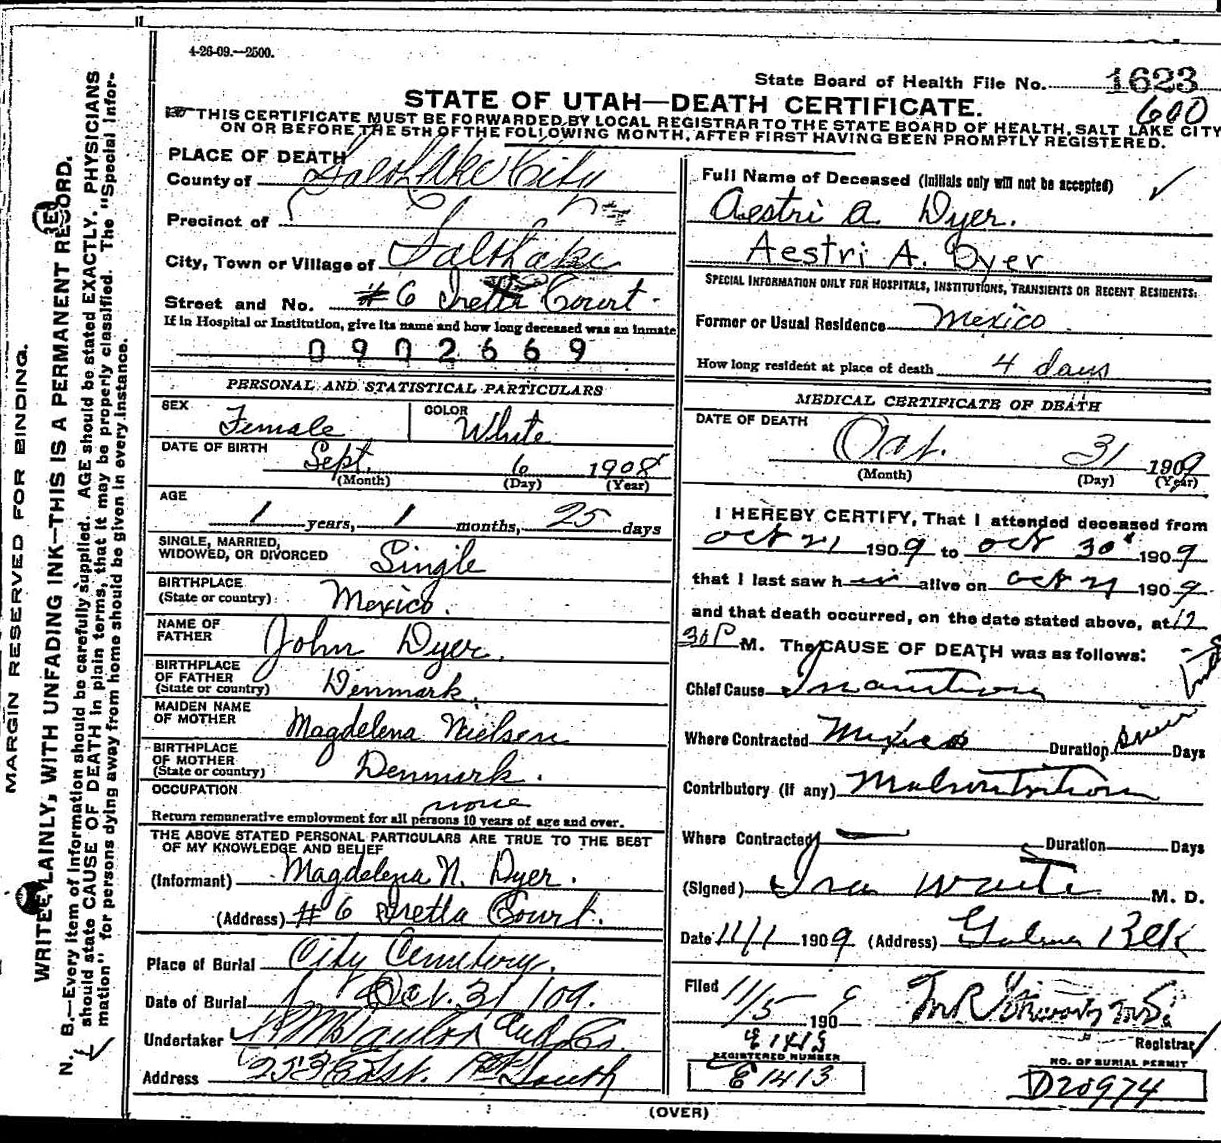 4-26-09.—2500.
State Board of Health File No. 1623
600
STATE OF UTAH—DEATH CERTIFICATE.
THIS CERTIFICATE MUST BE FORWARDED BY LOCAL REGISTRAR TO THE STATE BOARD OF HEALTH, SALT LAKE CITY
ON OR BEFORE THE 5TH OF THE FOLLOWING MONTH, AFTER FIRST HAVING BEEN PROMPTLY REGISTERED.
PLACE OF DEATH
County of Salt Lake City
Precinct of
City, Town or Village of Salt Lake
Street and No. #6 Court.
If in Hospital or Institution, give its name and how long deceased was an inmate
0902669
PERSONAL AND STATISTICAL PARTICULARS
SEX Female COLOR White
DATE OF BIRTH Sept. 6 1908
(Month) (Day) (Year)
AGE
1 years, 1 months, 25 days
SINGLE, MARRIED,
WIDOWED, OR DIVORCED Single
BIRTHPLACE
(State or country) Mexico.
NAME OF
FATHER John Dyer.
BIRTHPLACE
OF FATHER
(State or country) Denmark.
MAIDEN NAME
OF MOTHER Magdelena Nielsen
BIRTHPLACE
OF MOTHER
(State or country) Denmark.
OCCUPATION none
Return remunerative employment for all persons 10 years of age and over.
THE ABOVE STATED PERSONAL PARTICULARS ARE TRUE TO THE BEST
OF MY KNOWLEDGE AND BELIEF
(Informant) Magdelena N. Dyer.
(Address) #6 Court.
Place of Burial City Cemetery.
Date of Burial Oct. 31 / 09.
Undertaker Und Co.
Address 253 East. 1st South
Full Name of Deceased (Initials only will not be accepted)
Aestri A. Dyer.
Aestri A. Dyer
SPECIAL INFORMATION ONLY FOR HOSPITALS, INSTITUTIONS, TRANSIENTS OR RECENT RESIDENTS:
Former or Usual Residence Mexico
How long resident at place of death 4 days
MEDICAL CERTIFICATE OF DEATH
DATE OF DEATH Oct. 31 1909
(Month) (Day) (Year)
I HEREBY CERTIFY, That I attended deceased from
Oct 21 1909 to Oct 30 1909
that I last saw h alive on Oct 1909
and that death occurred, on the date stated above, at 12
30 P M. The CAUSE OF DEATH was as follows:
Chief Cause Inanition
Where Contracted Mexico Duration Days
Contributory (If any) Malnutrition
Where Contracted Duration Days
(Signed) Ira M. D.
Date 11/1 1909 (Address)
Filed 11/5 1909
Registrar
E 1413
REGISTERED NUMBER
E 1413
NO. OF BURIAL PERMIT
D20974
(OVER)
MARGIN RESERVED FOR BINDING.
WRITE PLAINLY, WITH UNFADING INK—THIS IS A PERMANENT RECORD.
N. B.—Every item of information should be carefully supplied. AGE should be stated EXACTLY. PHYSICIANS
should state CAUSE OF DEATH in plain terms, that it may be properly classified. The "Special Infor-
mation" for persons dying away from home should be given in every instance.